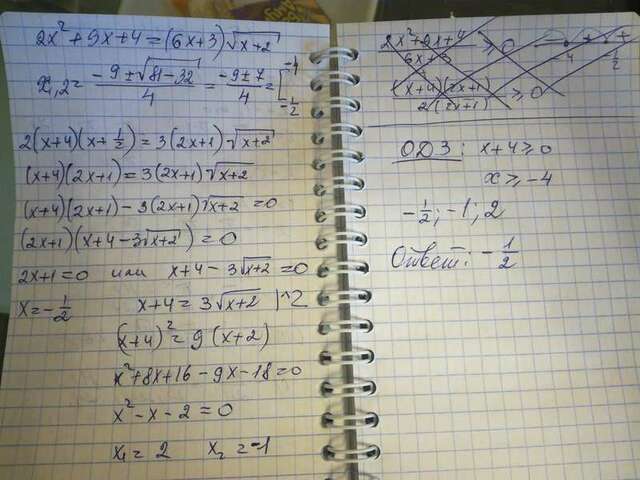 2x² + 9x + 4 = (6x+3)√(x+2)
x₁,₂ = (-9 ± √(81-32))/4 = (-9 ± 7)/4 = [-4; -1/2
2(x+4)(x+1/2) = 3(2x+1)√(x+2)
(x+4)(2x+1) = 3(2x+1)√(x+2)
(x+4)(2x+1) - 3(2x+1)√(x+2) = 0
(2x+1)(x+4-3√(x+2)) = 0
2x+1=0 или x+4-3√(x+2) = 0
x = -1/2 x+4 = 3√(x+2) |^2
(x+4)² = 9(x+2)
x²+8x+16-9x-18=0
x²-x-2=0
x₁ = 2 x₂ = -1
(2x²+9x+4)/(6x+3) ≥ 0
-4 -1/2
(x+4)(2x+1)/2(2x+1) ≥ 0
ОДЗ: x+4 ≥ 0
x ≥ -4
-1/2; -1; 2
Ответ: -1/2